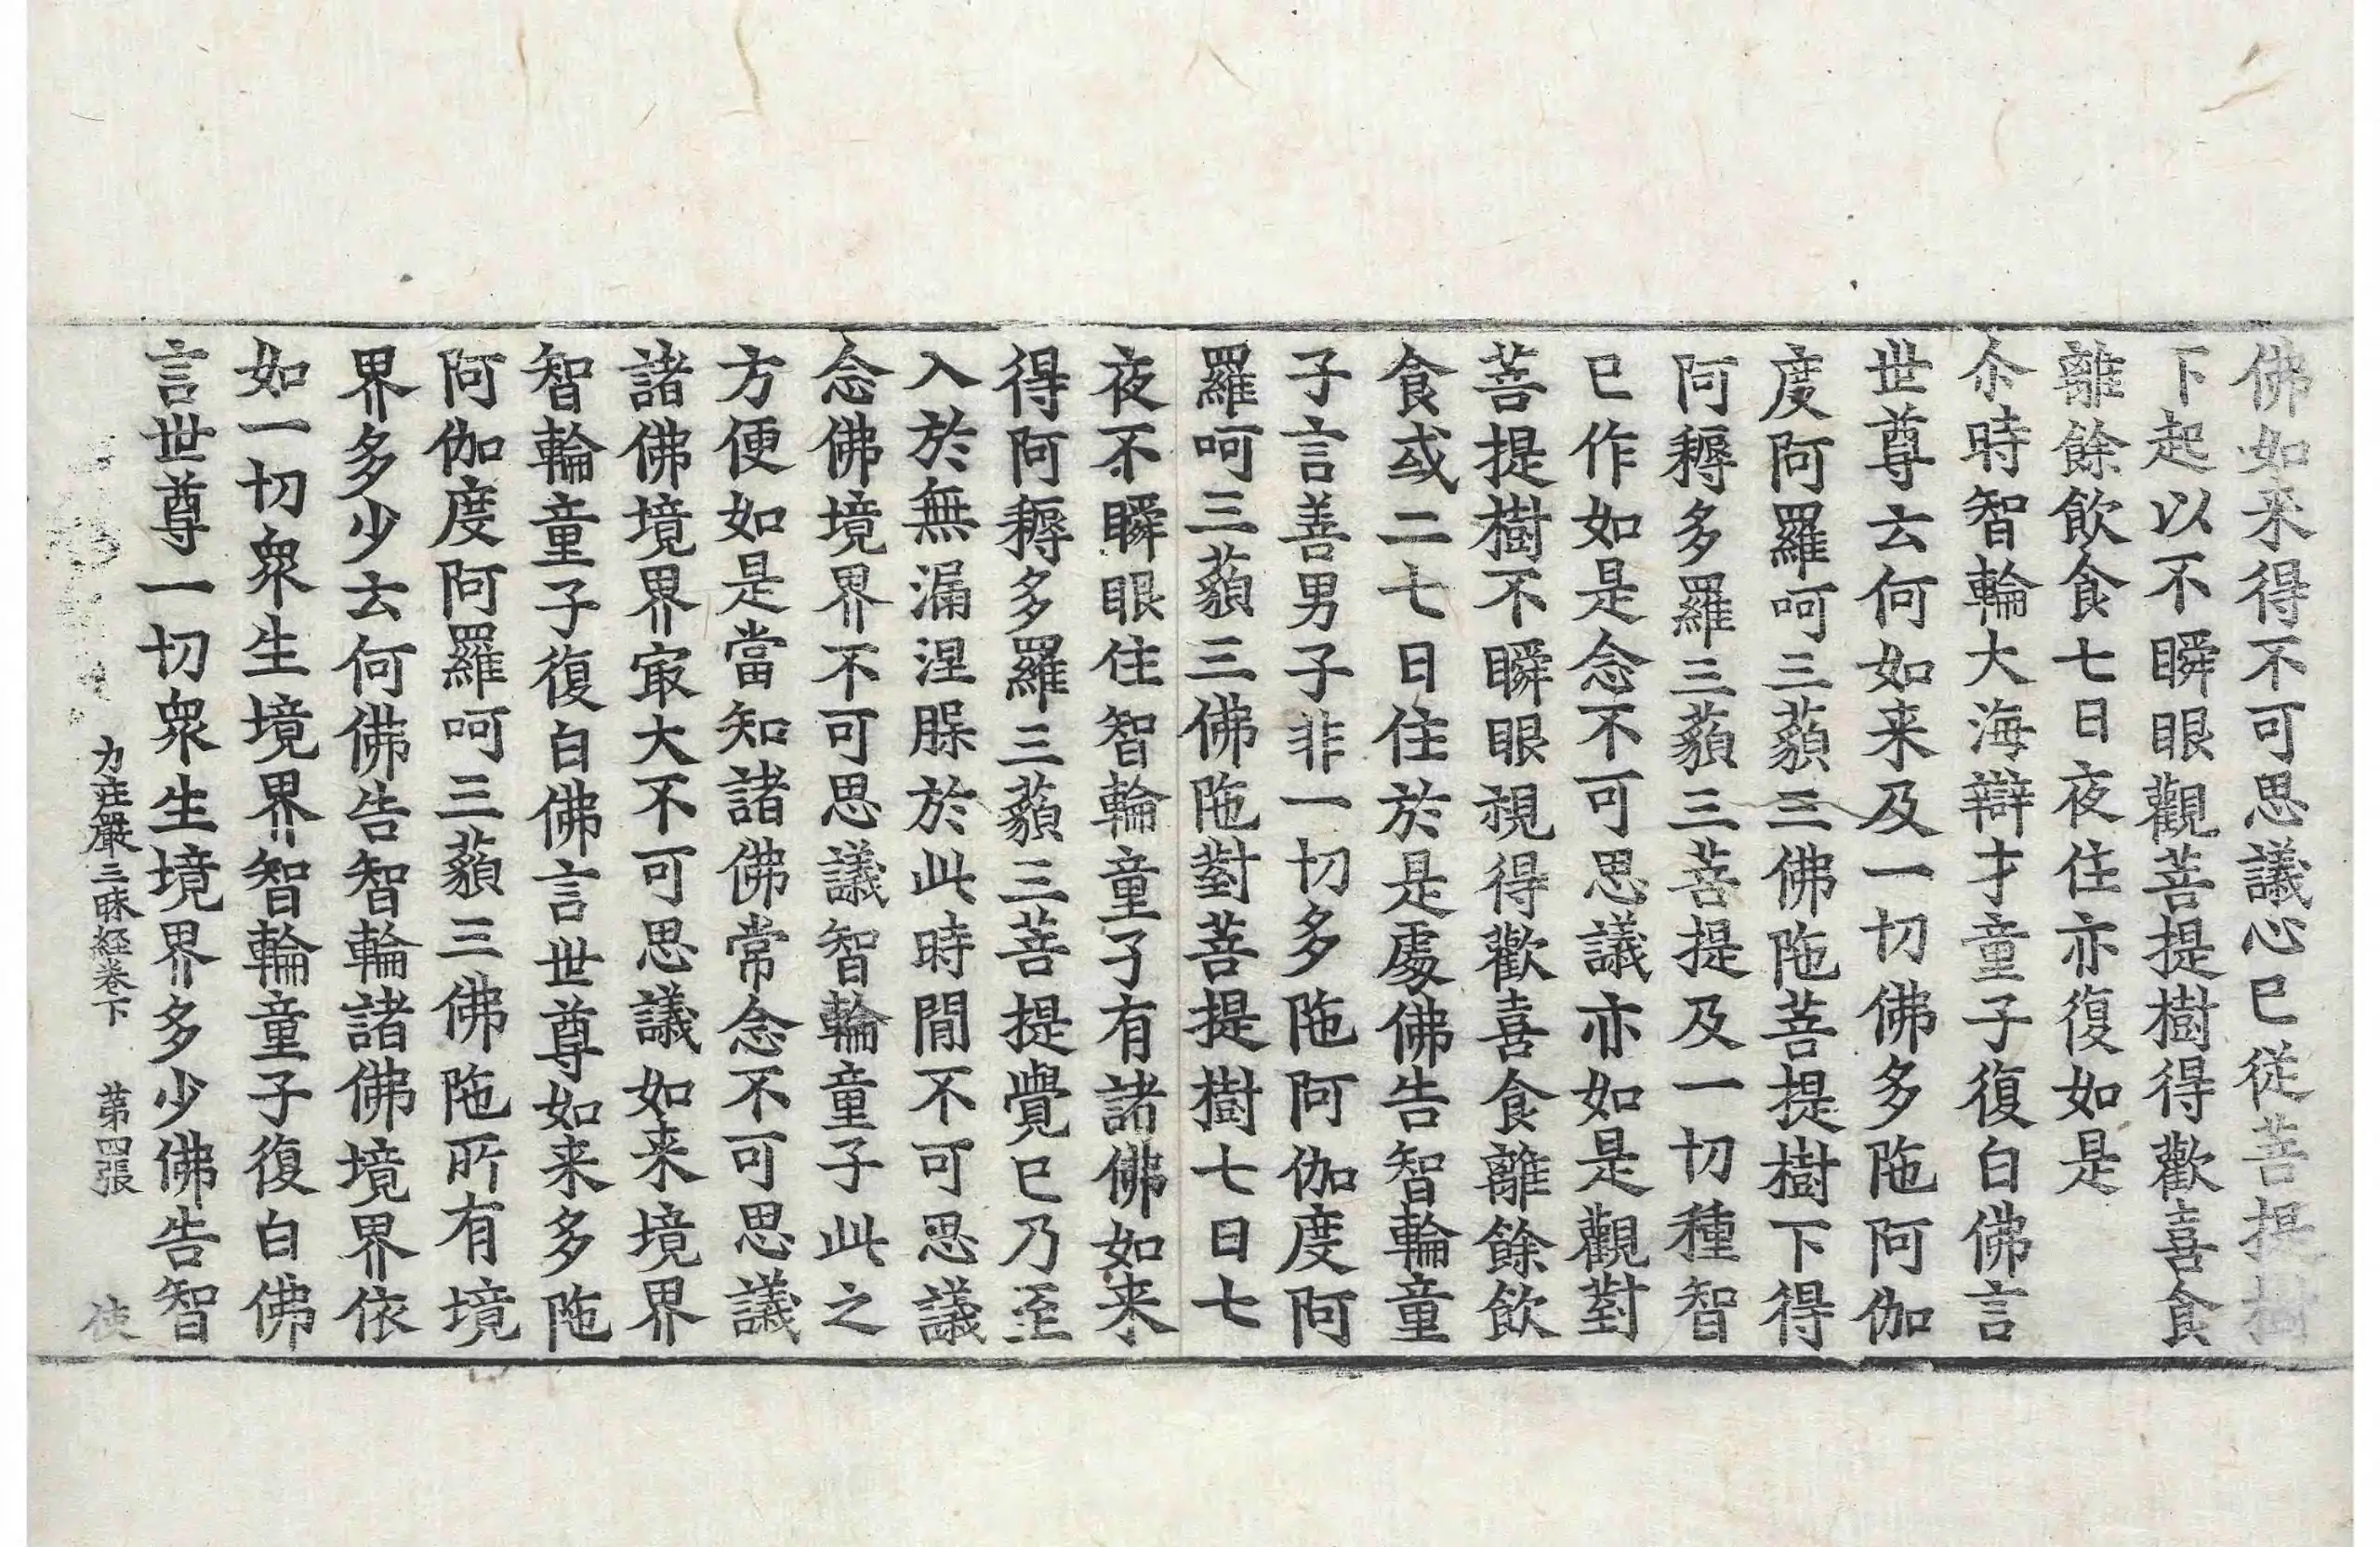 佛如来得不可思議心已從菩提樹
下起以不瞬眼觀菩提樹得歡喜食
離餘飲食七日夜住亦復如是
尒時智輪大海辯才童子復白佛言
世尊云何如来及一切佛多陁阿伽
度阿羅呵三藐三佛陁菩提樹下得
阿耨多羅三藐三菩提及一切種智
已作如是念不可思議亦如是觀對
菩提樹不瞬眼視得歡喜食離餘飲
食或二七日住於是處佛告智輪童
子言善男子非一切多陁阿伽度阿
羅呵三藐三佛陁對菩提樹七日七
夜不瞬眼住智輪童子有諸佛如来
得阿耨多羅三藐三菩提覺已乃至
入於無漏涅脲於此時間不可思議
念佛境界不可思議智輪童子此之
方便如是當知諸佛常念不可思議
諸佛境界冣大不可思議如来境界
智輪童子復白佛言世尊如来多陁
阿伽度阿羅呵三藐三佛陁所有境
界多少云何佛告智輪諸佛境界依
如一切衆生境界智輪童子復白佛
言世尊一切衆生境界多少佛告智
力莊嚴三昧經卷下　第四張　使